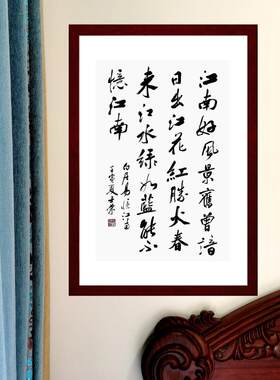 江南好風景舊曾諳
日出江花紅勝火春
來江水綠如藍能不
憶江南
白居易憶江南
夏